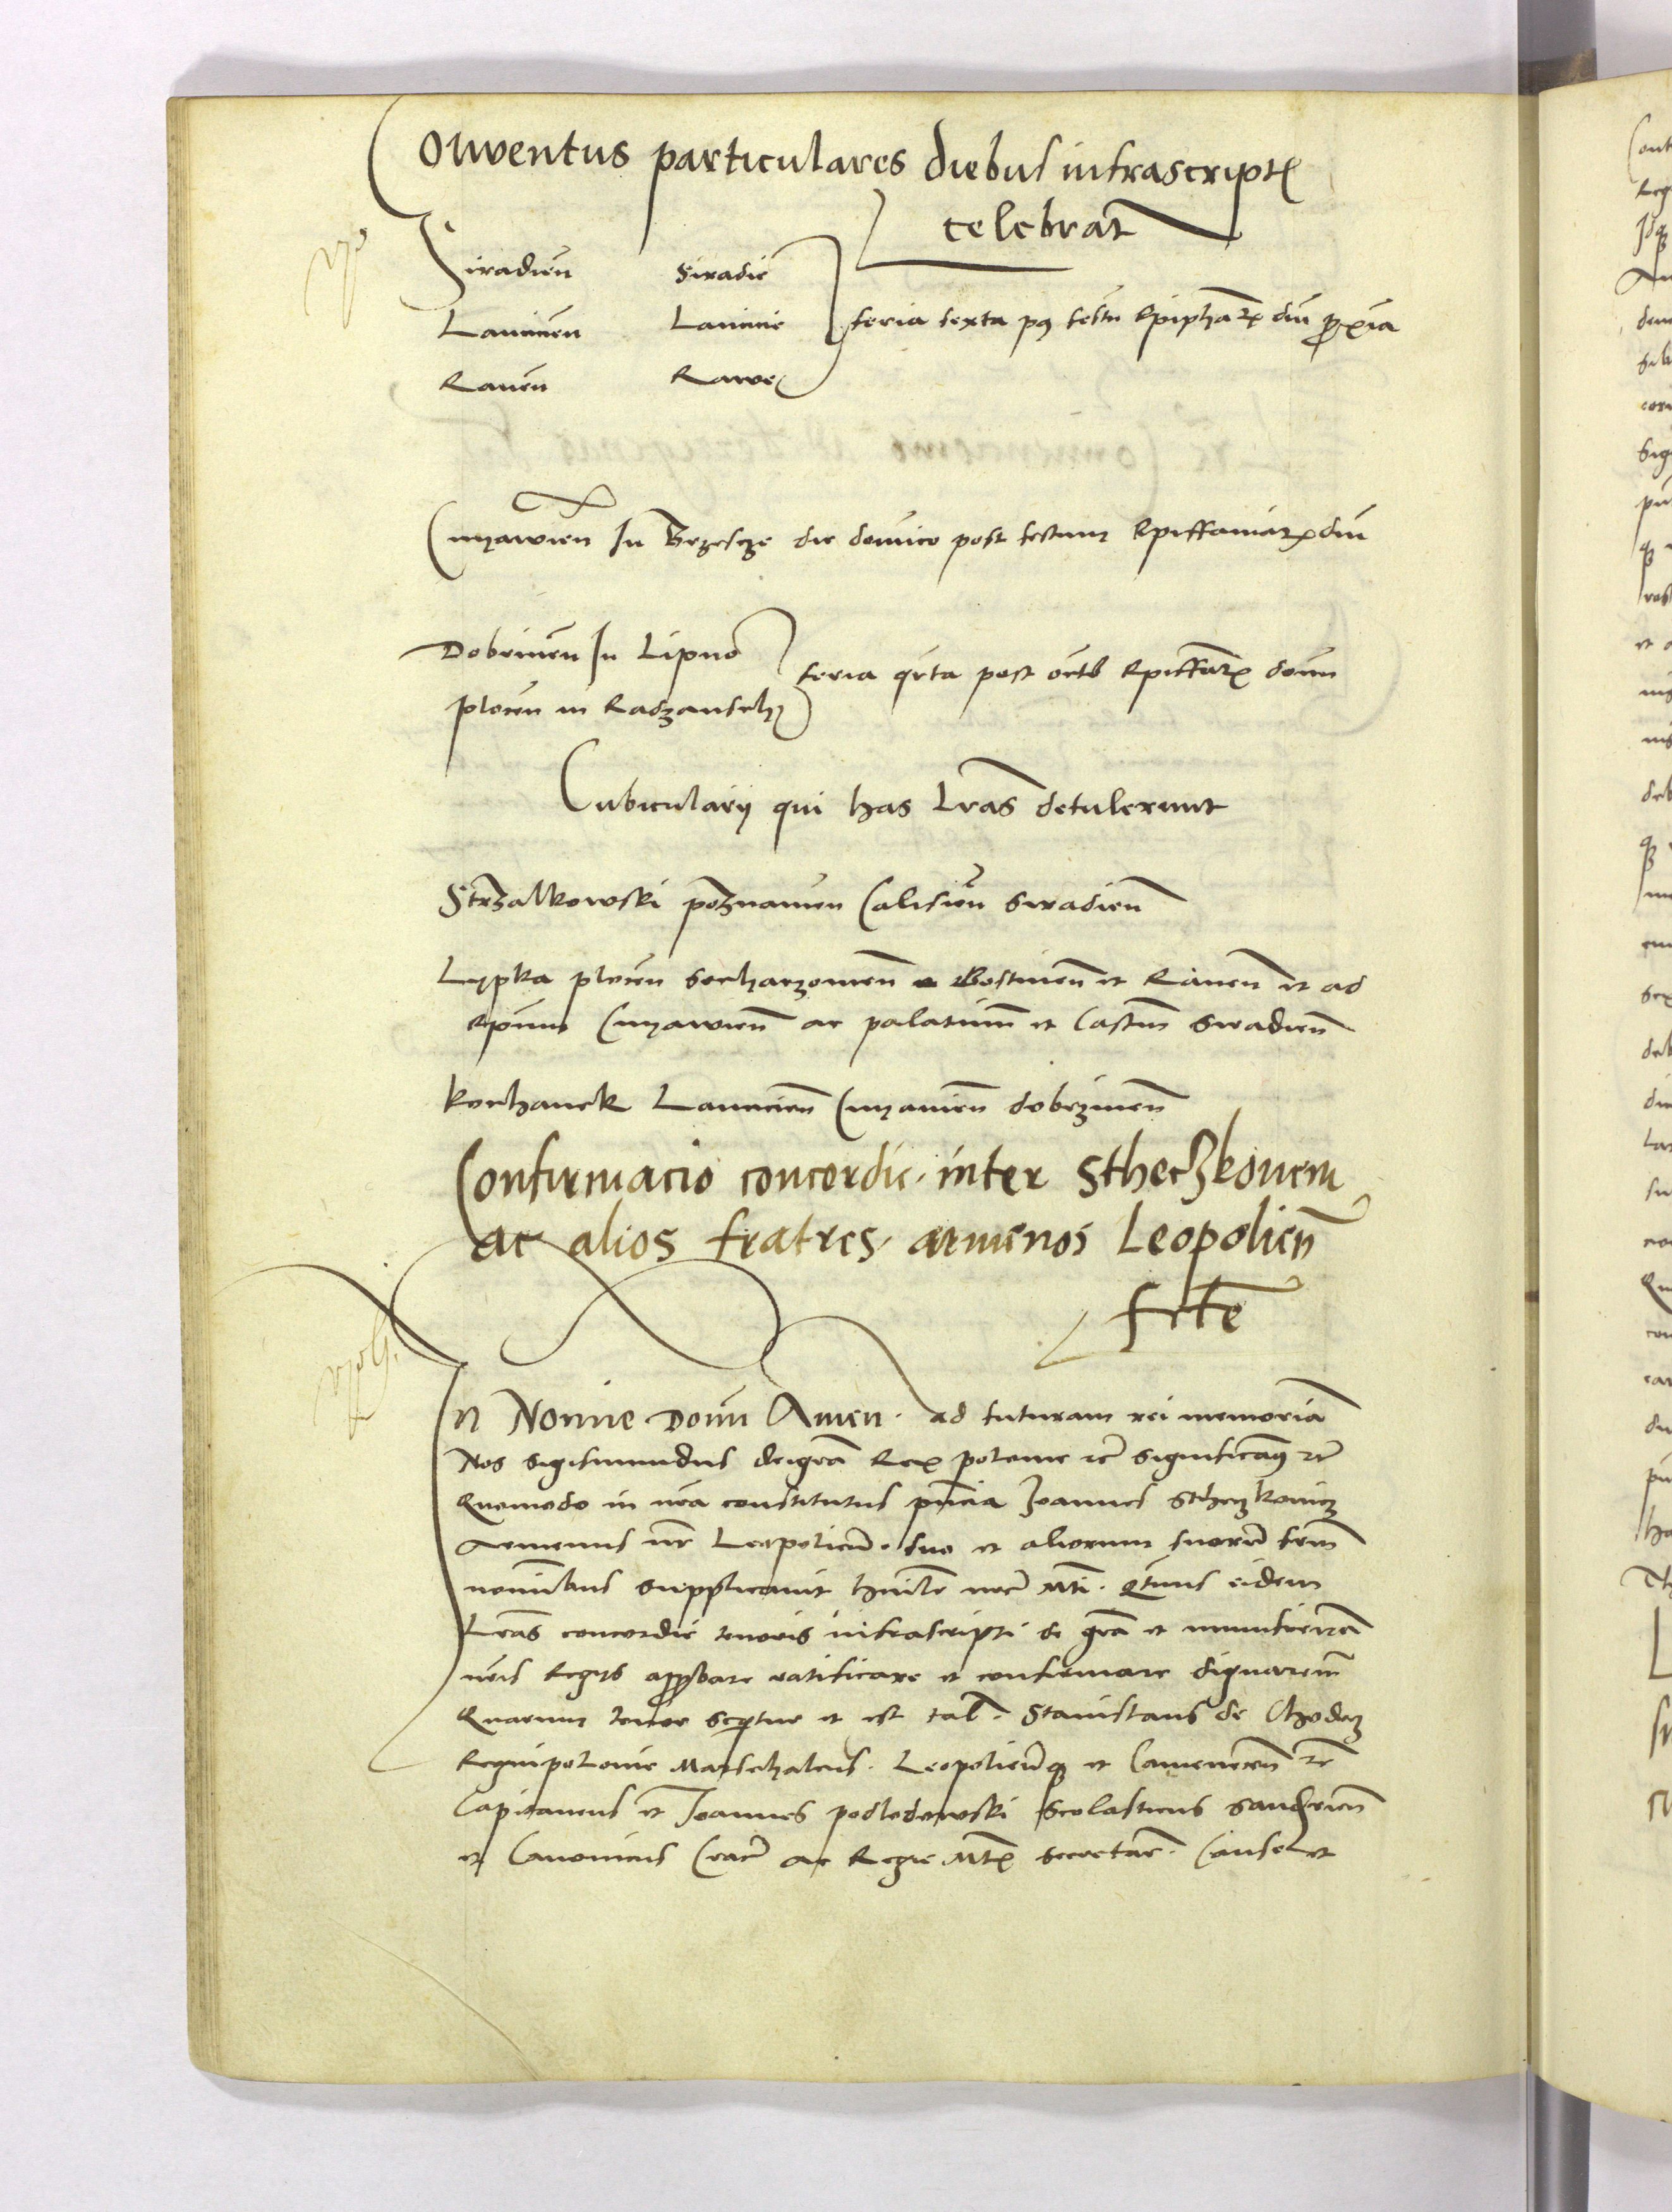 Conventus particulares diebus infrascript
celebrat
Siradien Siradie
Lancicien Lancicie feria sexta pq festu Epiphaniar dni proxia
Raven Rawe
Cuyavien In Brzescze die dominico post festum Epiffaniar dni
Dobrinen In Lipno
feria qrta post oct Epiffar domi
plocen in Radzansch
Cubicularij qui has Lras detulerunt
Strzalkowski poznanien Calisien Siradien
Lypka plocen Sochaczovien Gostinen et Raven et ad
Epum Cuyavien ac palatinum et Castm Siradien
kochanek Lancicien Cuyavien dobrzinen
Confirmacio concordie inter Stheczkonem
ac alios fratres armenos Leopolien
frte
In Nomine Domi Amen. ad futuram rei memoria
Nos Sigismundus dei gra Rex polonie etc Significamus etc
Quomodo in nra constitutus pncia Joannes Stheczkovicz
Armenus nr Leopolien. suo et aliorum suoru frm
nominibus supplicavit humile nre Mti. Qtenus eidem
Lras concordie tenoris infrascripti de gra et munificencia
nris Regijs approbare ratificare et confirmare dignaremur
Quarum tenor sequitur et est tal. Stanislaus de Chodecz
Regni polonie Marschalcus. Leopoliensque et Camenecen etc
Capitaneus et Joannes podlodowski Scolasticus Sandomirien
et Canonicus Crac ac Regie Mt Secretar. Cause et